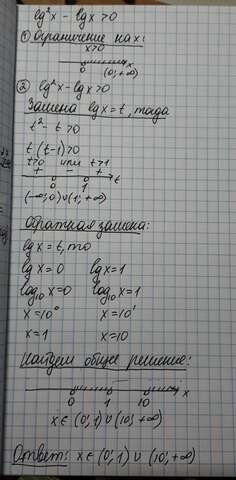 lg²x - lgx > 0
① Ограничение на x:
x>0
0 (0; +∞) x
② lg²x - lgx > 0
Замена lgx = t, тогда
t² - t > 0
t(t-1) > 0
t>0 или t>1
+ - +
0 1 t
(-∞; 0) ∪ (1; +∞)
Обратная замена:
lgx = t, то
lgx = 0 lgx = 1
log₁₀x = 0 log₁₀x = 1
x = 10⁰ x = 10¹
x = 1 x = 10
Найдем общее решение:
0 1 10 x
x ∈ (0; 1) ∪ (10; +∞)
Ответ: x ∈ (0; 1) ∪ (10; +∞)